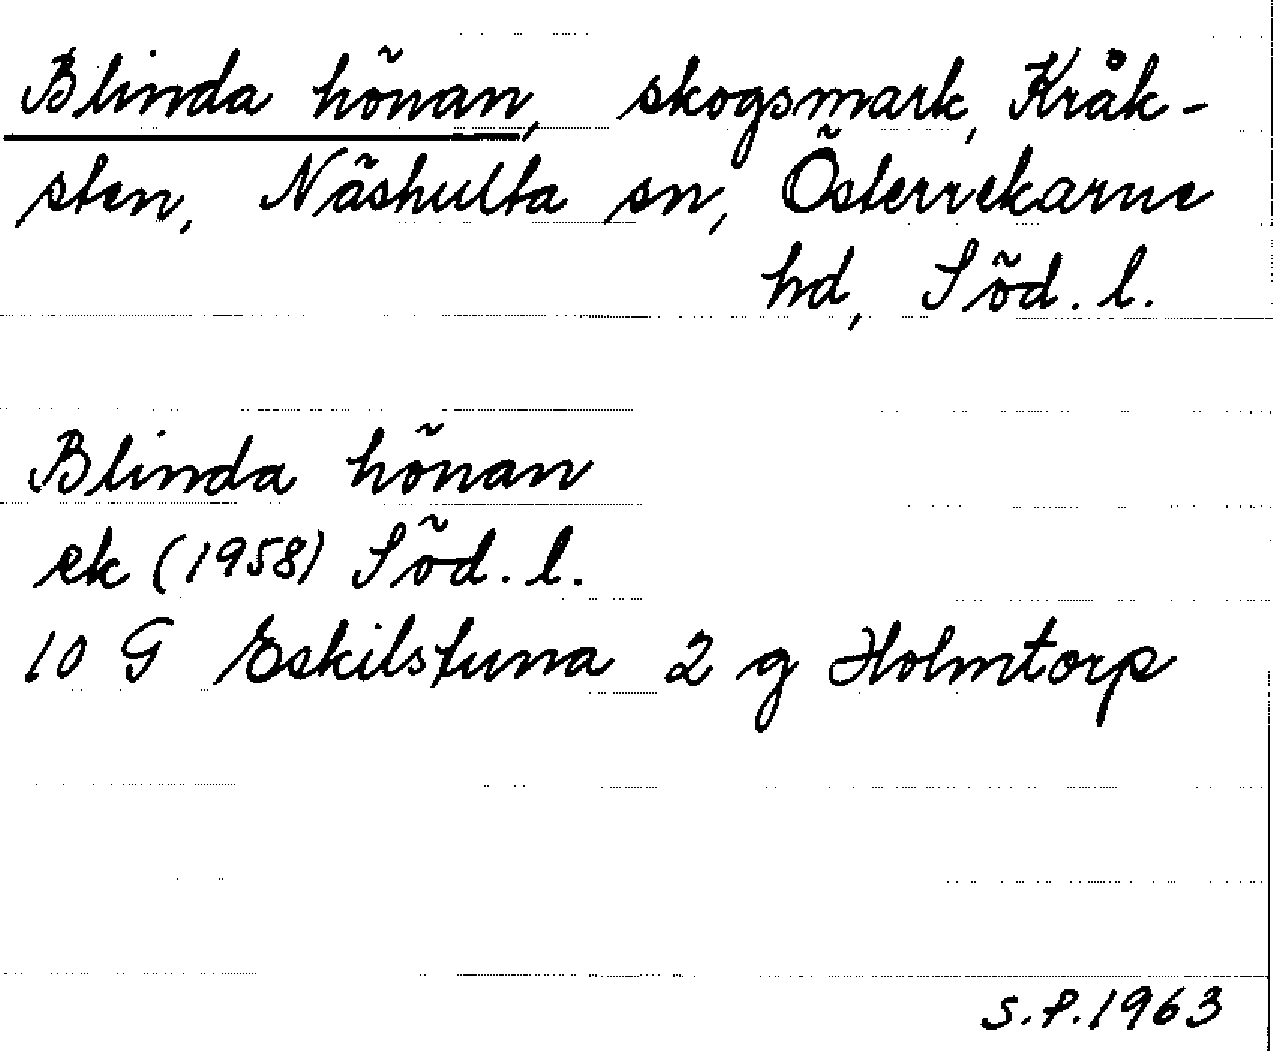 Blinda hönan, skogsmark, Kråk-
sten, Näshulta sn, Österrekarne
hd, Söd. l.
Blinda hönan
ek (1958) Söd. l.
10 G Eskilstuna 2 g Holmtorp
S.P. 1963